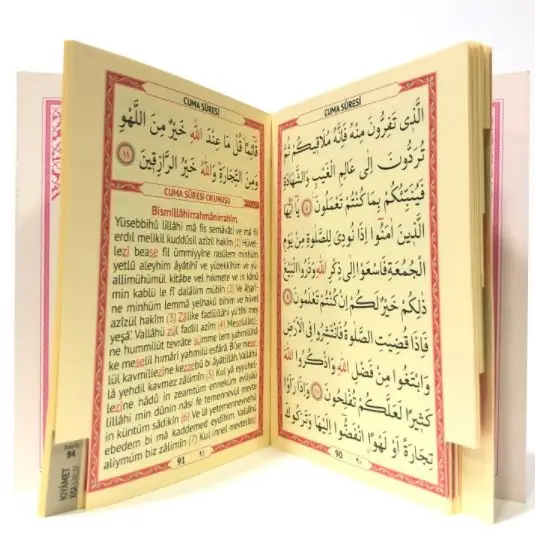 CUMA SÛRESİ
الَّذِى تَفِرُّونَ مِنْهُ فَاِنَّهُ مُلَاقِيكُمْ ثُمَّ
تُرَدُّونَ اِلٰى عَالِمِ الْغَيْبِ وَالشَّهَادَةِ
فَيُنَبِّئُكُمْ بِمَا كُنْتُمْ تَعْمَلُونَ ٨ يَا اَيُّهَا
الَّذِينَ اٰمَنُوا اِذَا نُودِىَ لِلصَّلٰوةِ مِنْ يَوْمِ
الْجُمُعَةِ فَاسْعَوْا اِلٰى ذِكْرِ اللّٰهِ وَذَرُوا الْبَيْعَ
ذٰلِكُمْ خَيْرٌ لَكُمْ اِنْ كُنْتُمْ تَعْلَمُونَ ٩
فَاِذَا قُضِيَتِ الصَّلٰوةُ فَانْتَشِرُوا فِى الْاَرْضِ
وَابْتَغُوا مِنْ فَضْلِ اللّٰهِ وَاذْكُرُوا اللّٰهَ
كَثِيرًا لَعَلَّكُمْ تُفْلِحُونَ ١٠ وَاِذَا رَاَوْا
تِجَارَةً اَوْ لَهْوًا انْفَضُّوا اِلَيْهَا وَتَرَكُوكَ
90 ٩٠
CUMA SÛRESİ
قَائِمًا قُلْ مَا عِنْدَ اللّٰهِ خَيْرٌ مِنَ اللَّهْوِ
وَمِنَ التِّجَارَةِ وَاللّٰهُ خَيْرُ الرَّازِقِينَ ١١
CUMA SÛRESİ OKUNUŞU
Bismillâhirrahmânirrahîm.
Yüsebbihü lillâhi mâ fis semâvâti ve mâ fil
erdıl melikil kuddûsil azîzil hakîm (1) Hüvel-
lezî bease fil ümmiyyîne rasûlem minhüm
yetlû aleyhim âyâtihî ve yüzekkîhim ve yü-
allimühümül kitâbe vel hıkmete ve in kânû
min kablü le fî dalâlim mübîn (2) Ve âharî-
ne minhüm lemmâ yelhakû bihim ve hüvel
azîzül hakîm (3) Zâlike fadlüllâhi yü'tîhi mey
yeşâ'. Vallâhü zül fadlil azîm (4) Meselüllezî-
ne hummilüt tevrâte sümme lem yahmilûhâ
ke meselil hımâri yahmilü esfârâ. Bi'se mese-
lül kavmillezîne kezzebû bi âyâtillâh. Vallâhü
lâ yehdil kavmez zâlimîn (5) Kul yâ eyyühel-
lezîne hâdû in zeamtüm enneküm evliyâü
lillâhi min dûnin nâsi fe temennevül mevte
in küntüm sâdikîn (6) Ve lâ yetemennevnehû
ebedem bi mâ kaddemed eydîhim. Vallâhü
alîymüm biz zâlimîn (7) Kul innel mevtellezî
91 ٩١
94
KIYÂMET
KISA SÛRELER